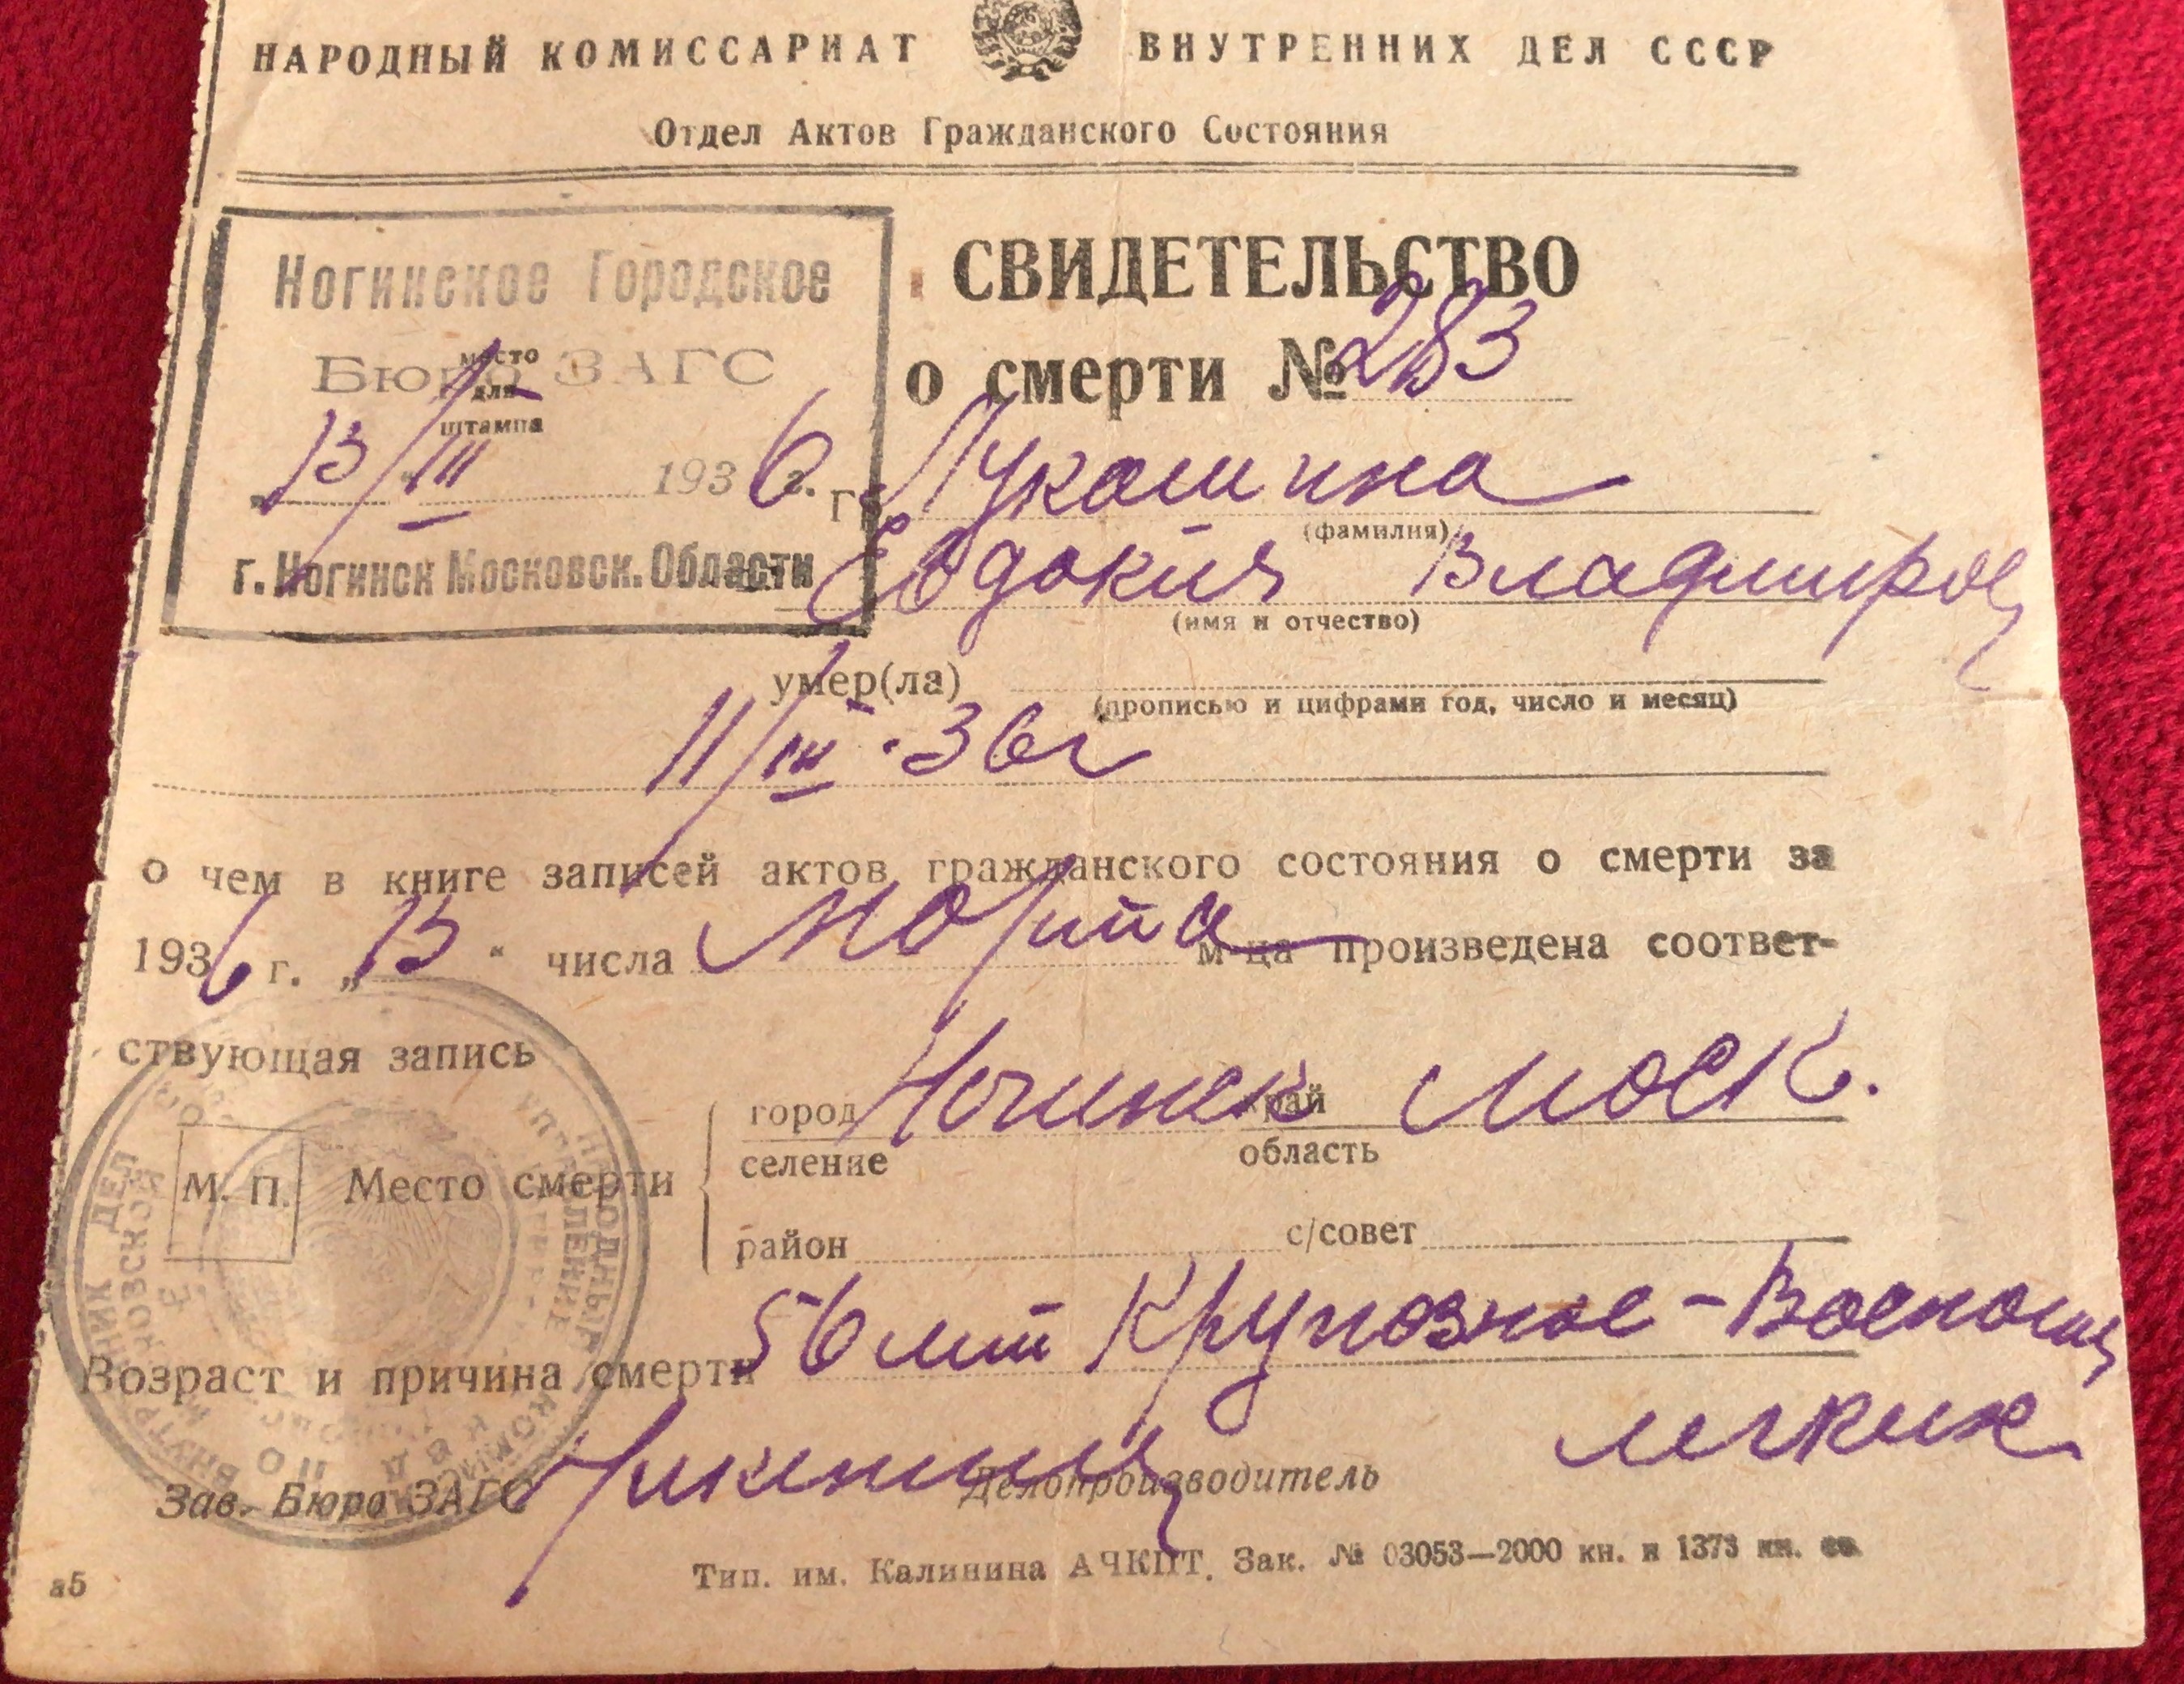 НАРОДНЫЙ КОМИССАРИАТ ВНУТРЕННИХ ДЕЛ СССР
Отдел Актов Гражданского Состояния
Ногинское Городское
Бюро ЗАГС
место
для
штампа
"13/III 1936 г.
г. Ногинск Московск. Области
СВИДЕТЕЛЬСТВО
о смерти № 283
гр. Лукашина
(фамилия)
Евдокия Владимиров
(имя и отчество)
умер(ла)
(прописью и цифрами год, число и месяц)
11/III·36г
о чем в книге записей актов гражданского состояния о смерти за
1936 г. „13“ числа Марта м-ца произведена соответ-
ствующая запись
М. П. Место смерти
город Ногинск край Моск.
селение область
район с/совет
Возраст и причина смерти 56 лет Крупозное-Воспален
легких
Зав. Бюро ЗАГС Делопроизводитель
а5 Тип. им. Калинина АЧКПТ. Зак. № 03053—2000 кн. и 1373 кн.